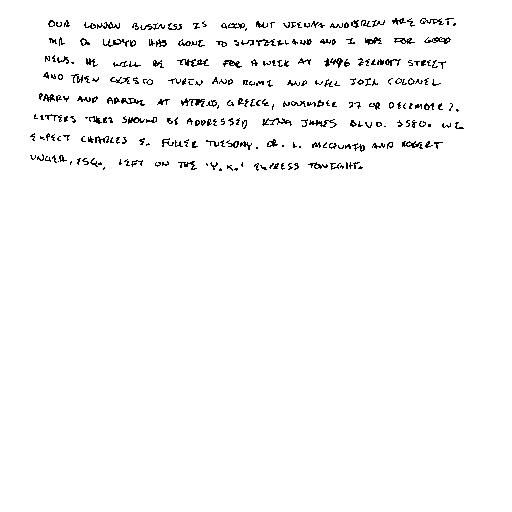 OUR LONDON BUSINESS IS GOOD, BUT VIENNA AND BERLIN ARE QUIET.
MR. D. LLOYD HAS GONE TO SWITZERLAND AND I HOPE FOR GOOD
NEWS. HE WILL BE THERE FOR A WEEK AT 1496 ZERMOTT STREET
AND THEN GOES TO TURIN AND ROME AND WILL JOIN COLONEL
PARRY AND ARRIVE AT ATHENS, GREECE, NOVEMBER 27 OR DECEMBER 2.
LETTERS THERE SHOULD BE ADDRESSED KING JAMES BLVD. 3580. WE
EXPECT CHARLES E. FULLER TUESDAY. DR. L. MCQUAID AND ROBERT
UNGER, ESQ., LEFT ON THE 'Y.X.' EXPRESS TONIGHT.